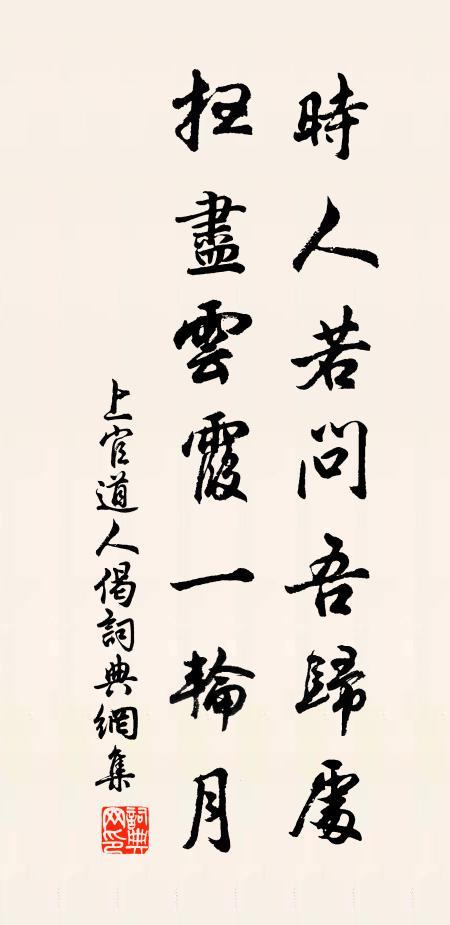 時人若問吾歸處
扫盡雲霞一輪月
上官道人偈詞典網集
詞典网印